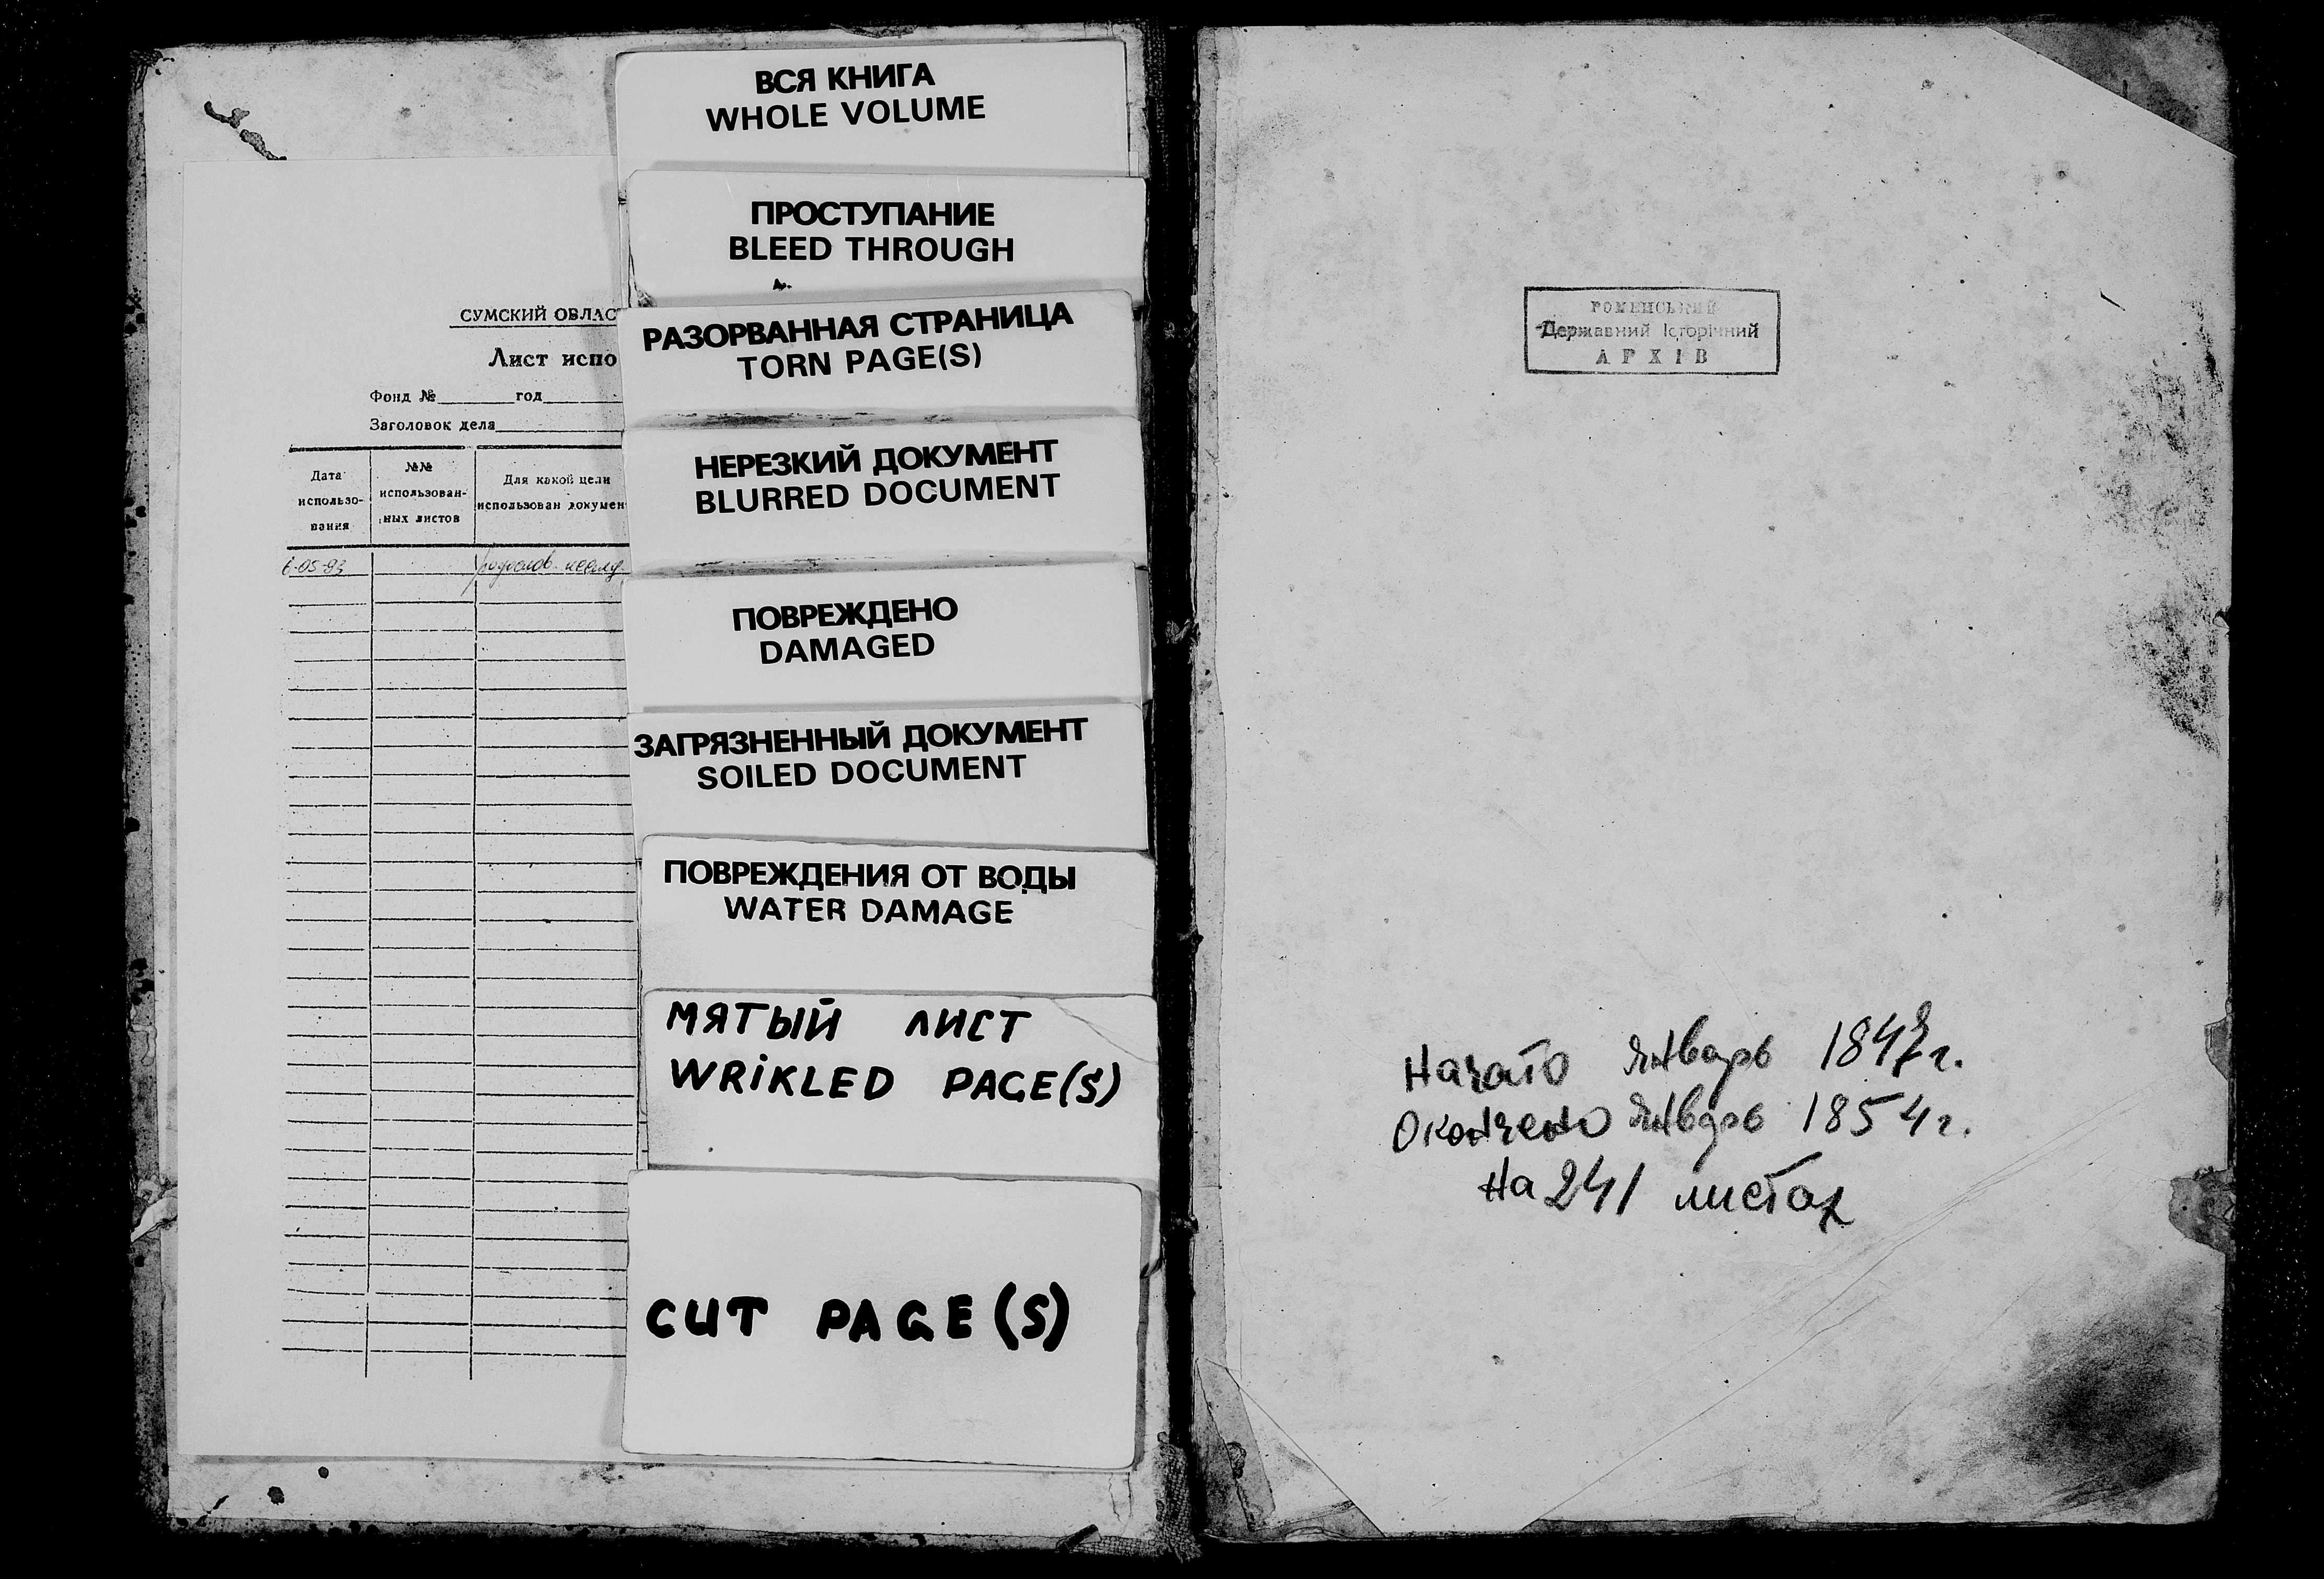 СУМСКИЙ ОБЛАС
Лист испо
Фонд № год
Заголовок дела
Дата использо- вания
№№ использован- ных листов
Для какой цели использован докумен
6-05-93
ВСЯ КНИГА
WHOLE VOLUME
ПРОСТУПАНИЕ
BLEED THROUGH
РАЗОРВАННАЯ СТРАНИЦА
TORN PAGE(S)
НЕРЕЗКИЙ ДОКУМЕНТ
BLURRED DOCUMENT
ПОВРЕЖДЕНО
DAMAGED
ЗАГРЯЗНЕННЫЙ ДОКУМЕНТ
SOILED DOCUMENT
ПОВРЕЖДЕНИЯ ОТ ВОДЫ
WATER DAMAGE
МЯТЫЙ ЛИСТ
WRIKLED PAGE(S)
CUT PAGE(S)
РОМЕНСЬКИЙ
Державний Історічний
АРХІВ
Начато январь 1847 г.
Окончено январь 1854 г.
На 241 листах